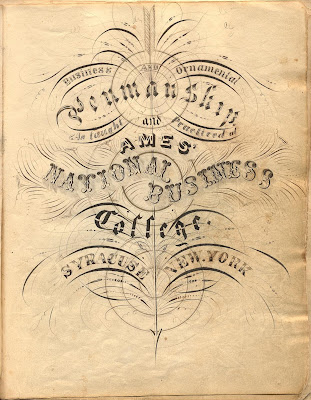 Business and Ornamental
Penmanship
As taught and Practiced at
AMES'
NATIONAL BUSINESS
College.
SYRACUSE NEW.YORK